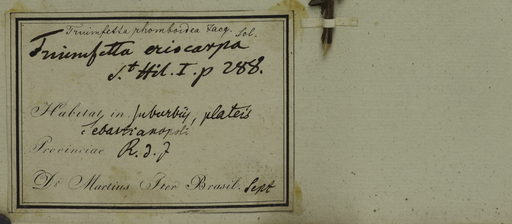 Triumfetta rhomboidea Jacq. Sol.
Triumfetta eriocarpa
St Hil. I. p 288.
Habitat in suburbijs, plateis
Sebastianopoli
Provinciae R. d. J
Dr Martius Iter Brasil. Sept